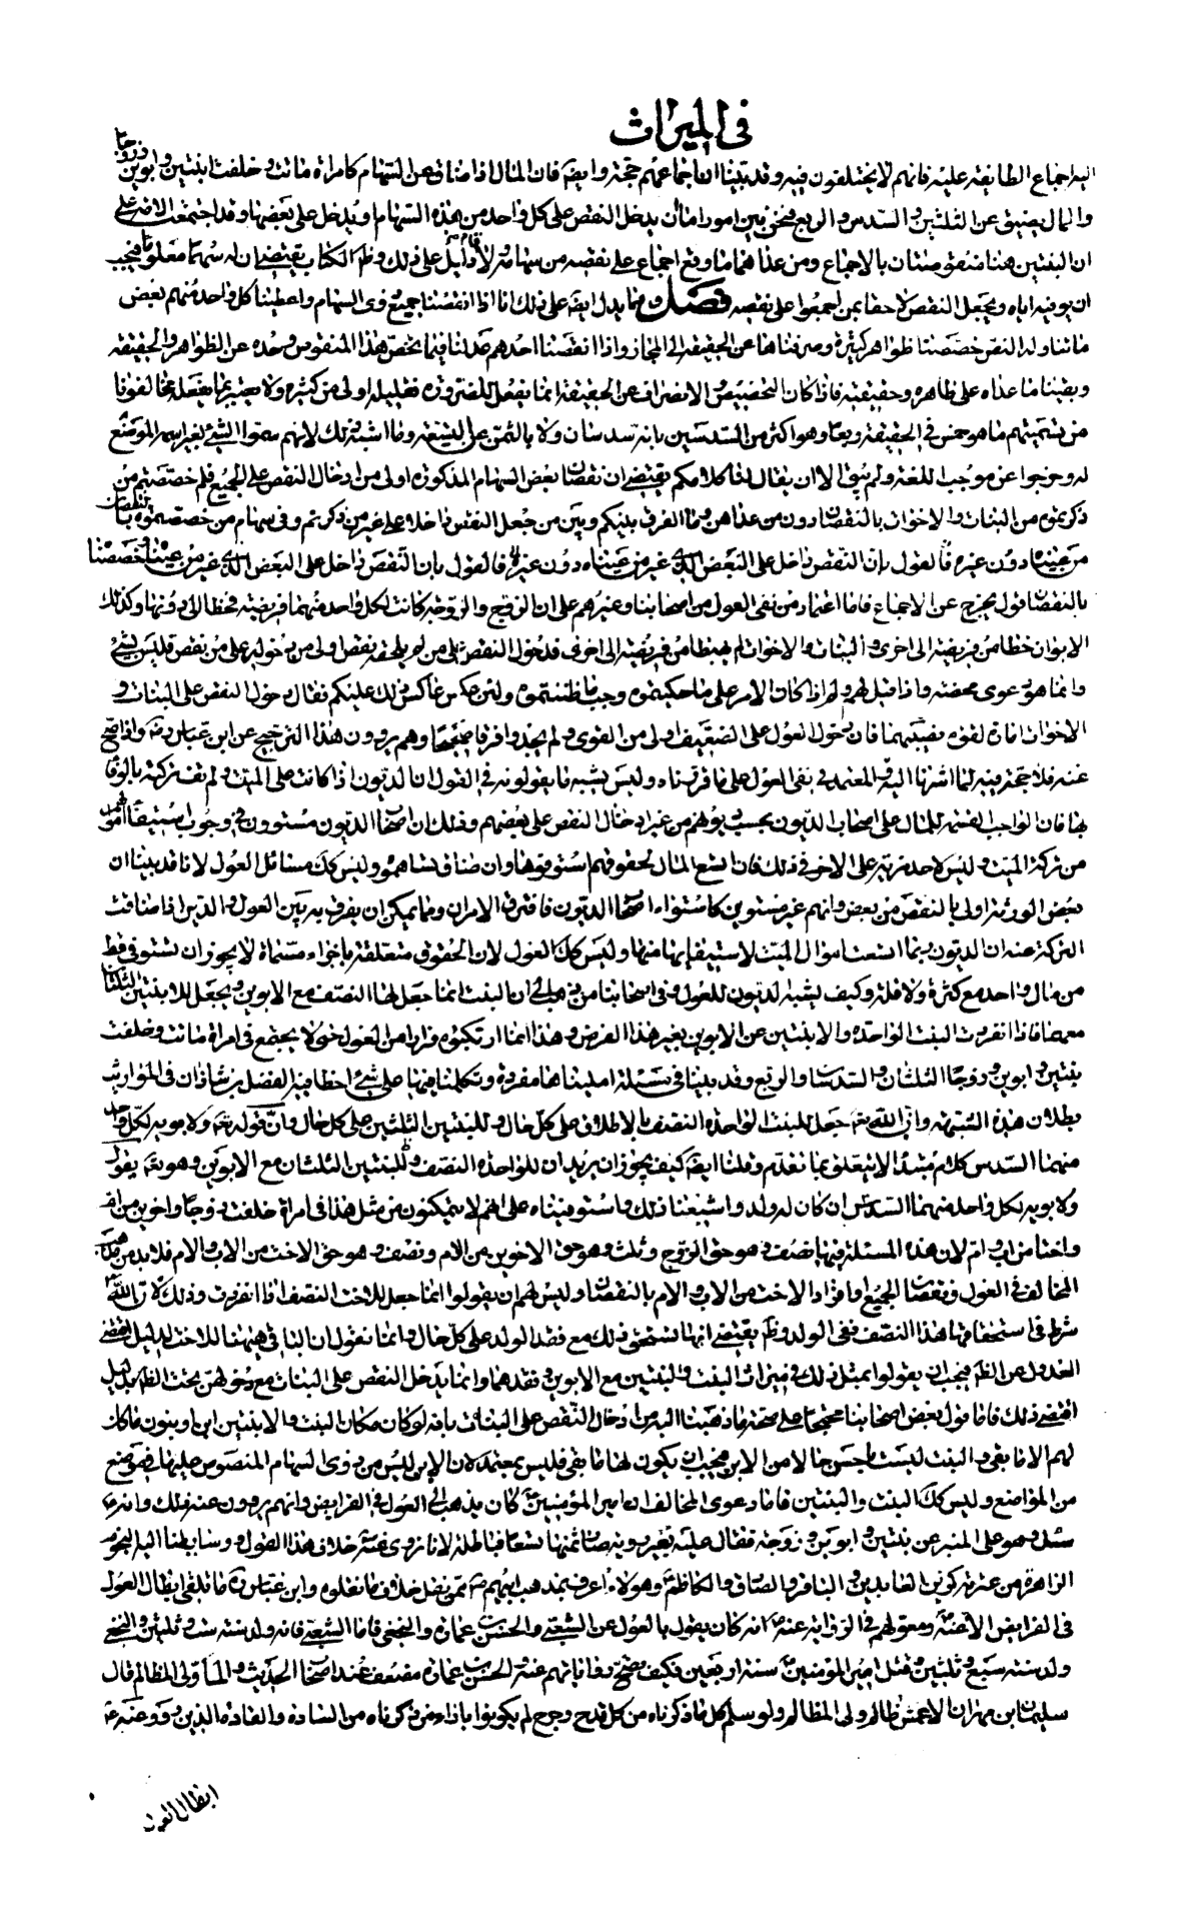 فى الميراث
اليه اجماع الطايفة عليه فانهم لا يختلفون فيه وقد بيّنا ان اجماعهم حجة وايضً فان المال اذا ضاق عن السهام كامراة ماتت وخلفت ابنتين وابوين وزوجا
والمال يضيق عن الثلثين والسدس والربع فنحن بين امور اما ان يدخل النقص على كل واحد من هذه السهام او يدخل على بعضها وقد اجتمعت الامة على
ان البنتين هنا منقوصتان بلا اجماع ومن عداهما ما وقع اجماع على نقصه من سهامه ولا قام دليل على ذلك وظم الكتاب يقتضى ان له سهما معلوما فيجب
ان يوفيه اياه ويجعل النقص لاحقا بمن اجمعوا على نقصه فصل ومما يدل ايضً على ذلك انا اذا انقصنا جميع ذوى السهام واعطينا كل واحد منهم بعض
ما تناوله النص خصصنا ظواهر كثيرة وصرفناها عن الحقيقة الى المجاز واذا انقصنا احدهم عدلنا فيما يخص هذا المنقوص وحده عن الظواهر والحقيقة
وبقينا ما عداه على ظاهره وحقيقته فاذا كان التخصيص والانصراف عن الحقيقة انما يفعل للضرورة فقليله اولى من كثيره ولا معتبر بما يفعله مخالفونا
من تسميتهم ما هو خمس فى الحقيقة ربعا وهو اكثر من السدسين بانه سدسان ولا بالثمن عن التسع وما اشبه ذلك لانهم سموا الشئ بغير اسمه الموضوع
له وخرجوا عن موجب اللغة ولم يبق الا ان يقال لنا كلامكم يقتضى ان نقصان بعض السهام المذكورة اولى من ادخال النقص على الجميع فلم خصصتم من
ذكرتموه من البنات والاخوات بالنقصان دون من عداهن وما الفرق بينكم وبين من جعل النقص داخلا على غير من ذكرتم وفى سهام من خصصتموه بالنقصان
من عيناه دون غيره فالقول بان النقص داخل على البعض الذى غير من عيناه دون غيره فالقول بان النقص داخل على البعض الذى غير من عيناه وخصصنا
بالنقصان قول يخرج عن الاجماع فاما اعتماد من نفى العول من اصحابنا وغيرهم على ان الزوج والزوجة كانت لكل واحد منهما فريضة فحطا الى دونها وكذلك
الابوان حطا من فريضة الى اخرى والبنات والاخوات لم يهبطا من فريضة الى اخرى فدخول النقص على من لم يلحقه نقص اولى من دخوله على من نقص فليس بشئ
وانما هو دعوى محضة واذا قيل لهم ولم اذا كان الامر على ما حكيتموه وجب ما ظننتموه ولئن عكس عاكس ذلك عليكم فقال دخول النقص على البنات و
الاخوات امارة لقوة نصيبهما فان دخول العول على الضعيف اولى من القوى ولم يجدوا فرقا صحيحا وهم يروون هذا الترجيح عن ابن عباس ره واذا صح
عنه فلا حجة فيه لما اشرنا اليه المعتمد فى نفى العول على ما قررناه وليس يشبه ما يقولونه فى العول ان الديون اذا كانت على الميت ولم تف تركته بالوفا
بها فان الواجب القسمة للمال على اصحاب الديون بحسب ديونهم من غير ادخال النقص على بعضهم وذلك ان اصحاب الديون مستوون فى وجوب استيفا اموالهم
من تركة الميت وليس لاحد مزية على الاخر فى ذلك فان اتسع المال لحقوقهم استوفوها وان ضاق تساهموه وليس كك مسائل العول لانا قد بينا ان
بعض الورثة اولى بالنقص من بعض وانهم غير مستوين كاستواء اصحاب الديون فافترق الامران ومما يمكن ان يفرق به بين العول والدين اذا ضاقت
التركة عنه ان الديون ربما اتسعت اموال الميت لاستيفائها منها وليس كك العول لان الحقوق متعلقة باجزاء مسماة لا يجوز ان تستوفى قط
من مال واحد مع كثرة ولا قلة وكيف يشبه الديون للعول وفى اصحابنا من يذهب الى ان البنت انما جعل لها النصف مع الابوين ويجعل للابنتين الثلثان
معهما فاذا انفردت البنت الواحدة والابنتين عن الابوين بغير هذا الفرض وهذا انما ارتكبوه فرارا من العول حتى لا يجتمع فى امراة ماتت وخلفت
بنتين وابوين وزوجا الثلثان والسدسان والربع وقد بينا فى مسئلة امليناها مفردة وتكلمنا فيها على شئ اخطا فيه الفضل بن شاذان فى المواريث
بطلان هذه الشبهة وان الله تعم جعل للبنت الواحدة النصف بالاطلاق على كل حال وللبنتين الثلثين على كل حال وان قوله تعم ولابويه لكل واحد
منهما السدس كلام مبتدأ لا يتعلق بما تقدم وقلنا ايضً كيف يجوز ان يريد ان للواحدة النصف وللبنتين الثلثان مع الابوين وهو تعم يقول
ولابويه لكل واحد منهما السدس ان كان له ولد واشبعنا ذلك واستوفيناه على انهم لا يتمكنون من مثل هذا فى امراة خلفت زوجا واخوين من ام
واختا من اب وام لان هذه المسئلة فيها نصف وهو حق الزوج وثلث وهو حق الاخوين من الام ونصف وهو حق الاخت من الاب والام فلا بد من مذهب
المخالف فى العول ونقصان الجميع او افراد الاخت من الاب والام بالنقصان وليس لهم ان يقولوا انما جعل للاخت النصف اذا انفردت وذلك لان الله
شرط فى استحقاقها هذا النصف نفى الولد وظم يقتضى انها تستحق ذلك مع فقد الولد على كل حال وانما نقول ان البنا فى هيهنا للاخت الدليل اقتضى
العدول عن الظم فيجب ان يقولوا بمثل ذلك فى ميراث البنت والبنتين مع الابوين وفقدهما وانما يدخل النقص على البنات مع دخولهن تحت الظم بدليل
اقتضى ذلك فاما قول بعض اصحابنا محتجا على صحة ما ذهبنا اليه من ادخال النقص على البنات بانه لو كان مكان البنت والابنتين ابن او بنون لما كان
لهم الا ما بقى والبنت ليست باحسن حالا من الابن فيجب ان يكون لها ما بقى فليس بمعتمد لان الابن ليس من ذوى السهام المنصوص عليها فى موضع
من المواضع وليس كك البنت والبنتين فاما دعوى المخالف ان امير المؤمنين ع كان يذهب الى العول فى الفرايض وانهم يروون عنه ذلك وانه ع
سئل وهو على المنبر عن بنتين وابوين وزوجة فقال ع عليه بغير روية صار ثمنها تسعا فباطلة لانا نروى عنه ع خلاف هذا القول ووسايطنا اليه النجوم
الزاهرة من عترته كزين العابدين والباقر والصادق والكاظم ع وهؤلاء اعرف بمذهب ابيهم ع ممن نقل خلاف ما نقلوه وابن عباس ره ما تلقى ابطال العول
فى الفرايض الا عنه ع ومعولهم فى الرواية عنه ع انه كان يقول بالعول عن الشعبى والحسن بن عمارة والنخعى فاما الشعبى فانه ولد سنة ست وثلثين والنخعى
ولد سنة سبع وثلثين وقتل امير المؤمنين ع سنة اربعين فكيف يصح رواياتهم عنه والحسن بن عمارة مضعف عند اصحاب الحديث ولما ولى المظالم قال
سليمان بن مهران الاعمش ظالم ولى المظالم ولو سلم كل ما ذكرناه من كل قدح وجرح لم يكونوا بازاء من ذكرناه من السادة والقادة الذين رووا عنه ع
ابطال العول